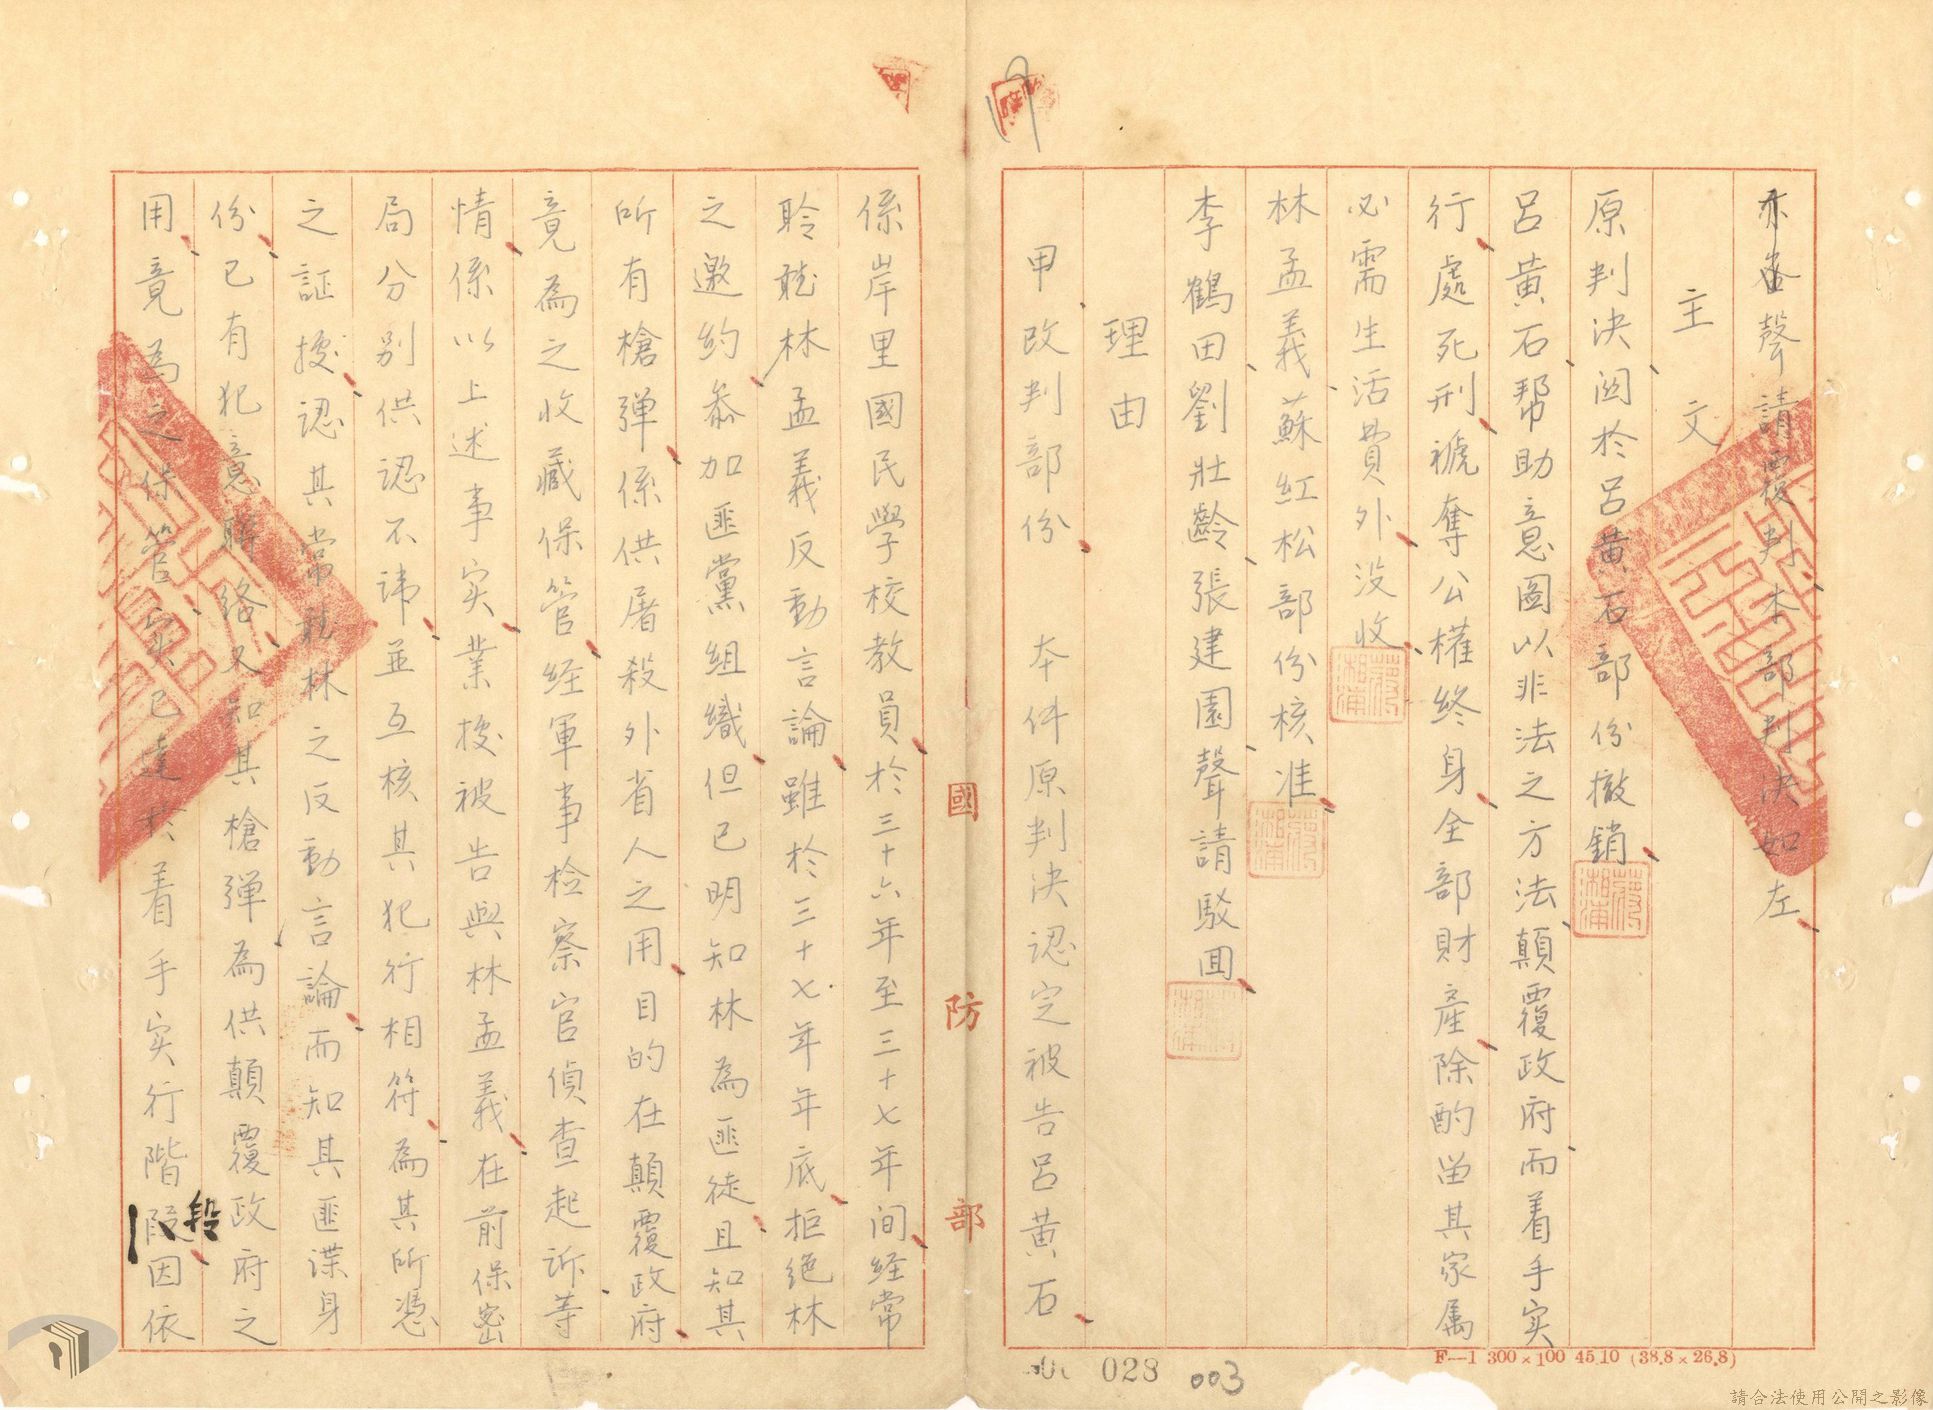 亦聲請覆判本部判決如左
主文
原判決関於呂黃石部份撤銷
呂黃石幫助意圖以非法之方法顛覆政府而着手实
行處死刑褫奪公權終身全部財產除酌留其家属
必需生活費外没收
林孟義蘇紅松部份核准
李鶴田劉壯齡張建園聲請駁回
理由
甲、改判部份 本件原判決認定被告呂黃石
係岸里國民學校教員於三十六年至三十七年间経常
聆聽林孟義反動言論雖於三十七年年底拒絶林
之邀約叅加匪黨組織但已明知林為匪徒且知其
所有槍彈係供屠殺外省人之用目的在顛覆政府
竟為之收藏保管経軍事检察官偵查起訴等
情係以上述事实業據被告與林孟義在前保密
局分别供認不諱並互核其犯行相符為其所憑
之証據認其常聽林之反動言論而知其匪諜身
份已有犯意聯絡又知其槍彈為供顛覆政府之
用竟為之保管实已達於着手实行階段因依
國防部
028
003
F—1 300×100 45.10 (38.8×26.8)
請合法使用公開之影像